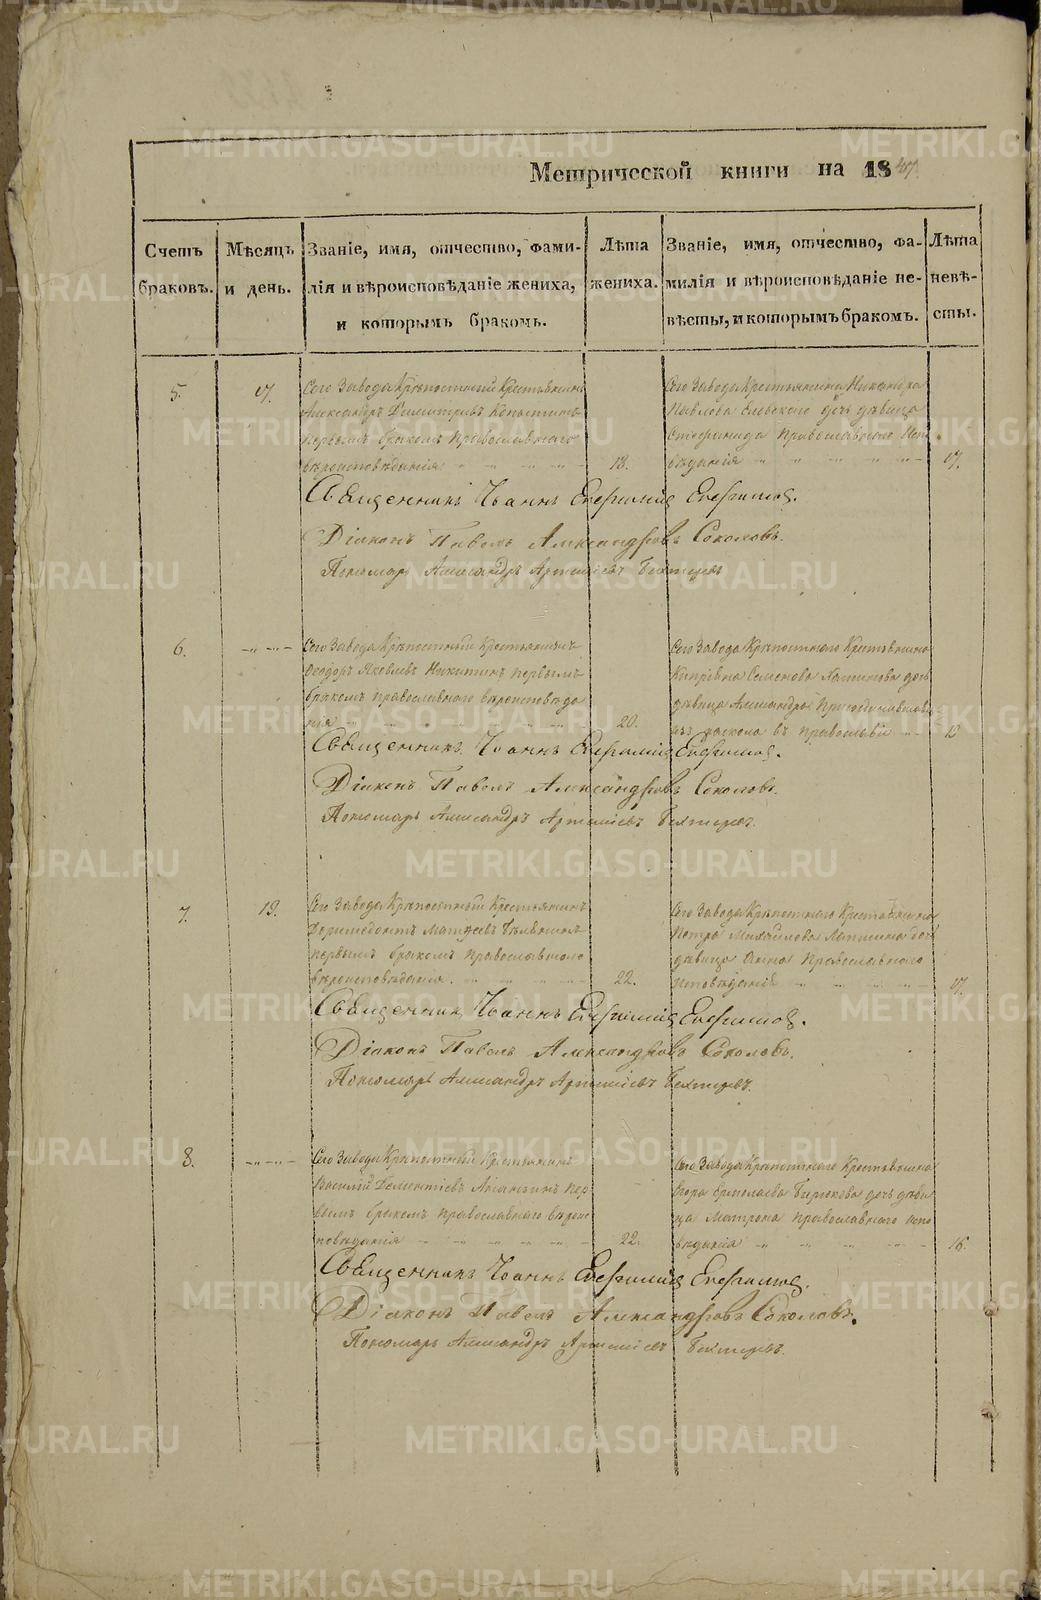 METRIKI.GASO-URAL.RU
Метрической книги на 1847
Счетъ браковъ.
Мѣсяцъ и день.
Званіе, имя, отчество, фами-
лія и вѣроисповѣданіе жениха,
и которымъ бракомъ.
Лѣта жениха.
Званіе, имя, отчество, фа-
милія и вѣроисповѣданіе не-
вѣсты, и которымъ бракомъ.
Лѣта невѣ-
сты.
5.
17.
Сего Завода Крѣпостный Крестьянинъ
Александръ Димитріевъ
первымъ бракомъ Православнаго
вѣроисповѣданія
18.
Сего Завода Крестьянина Никандра
Павлова дочь дѣвица
Стефанида Православнаго Испо
вѣданія
17.
Священникъ Іоаннъ Евфиміевъ Евфимовъ.
Діаконъ Павелъ Александровъ Соколовъ.
Пономарь Александръ Артеміевъ Бехтеревъ
6.
Сего Завода Крѣпостный Крестьянинъ
Феодоръ Яковлевъ Никитинъ первымъ
бракомъ православнаго вѣроисповѣда
нія
20.
Сего Завода Крѣпостнаго Крестьянина
Кипріяна Семенова дочь
дѣвица Александра Присоединившаяся
изъ раскола въ православіе
Священникъ Іоаннъ Евфиміевъ Евфимовъ.
Діаконъ Павелъ Александровъ Соколовъ.
Пономарь Александръ Артеміевъ Бехтеревъ.
7.
19.
Сего Завода Крѣпостный Крестьянинъ
Дормедонтъ Матѳеевъ
первымъ бракомъ Православнаго
вѣроисповѣданія.
22.
Сего Завода Крѣпостнаго Крестьянина
Петра Михайлова Лапшина дочь
дѣвица Анна Православнаго
исповѣданія
17.
Священникъ Іоаннъ Евфиміевъ Евфимовъ.
Діаконъ Павелъ Александровъ Соколовъ.
Пономарь Александръ Артеміевъ Бехтеревъ.
8.
Сего Завода Крѣпостный Крестьянинъ
Василій Дементіевъ Ананьинъ пер
вымъ бракомъ православнаго вѣроис
повѣданія
22.
Сего Завода Крѣпостнаго Крестьянина
Егора Ермолаева Бирюкова дочь дѣви
ца Матрона православнаго испо
вѣданія
16.
Священникъ Іоаннъ Евфиміевъ Евфимовъ.
Діаконъ Павелъ Александровъ Соколовъ.
Пономарь Александръ Артеміевъ Бехтеревъ.